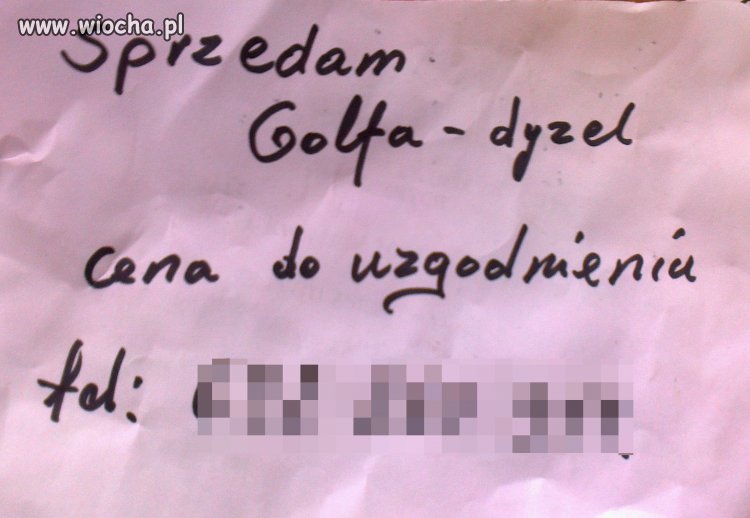 www.wiocha.pl
Sprzedam
Golfa - dyzel
cena do uzgodnieniu
tel: